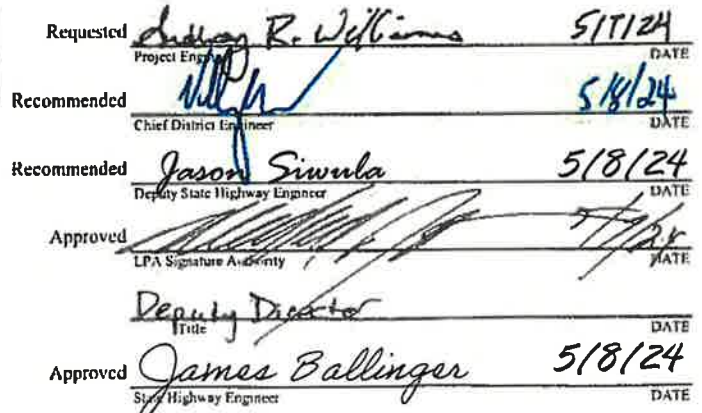 Requested R. Williams 5/7/24
Project Engineer DATE
Recommended 5/8/24
Chief District Engineer DATE
Recommended Jason Siwula 5/8/24
Deputy State Highway Engineer DATE
Approved
LPA Signature Authority DATE
Deputy Director
Title DATE
Approved James Ballinger 5/8/24
State Highway Engineer DATE